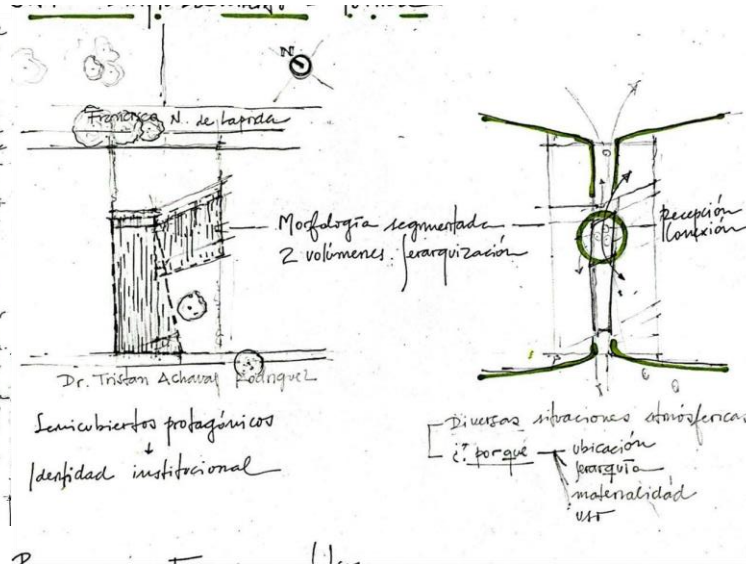 N
Francisco N. de Laprida
Morfología segmentada
2 volúmenes. Jerarquización
Recepción
Conexión
Dr. Tristan Achaval Rodriguez
Semicubiertos protagónicos
Identidad institucional
Diversas situaciones atmosféricas
¿? porqué
ubicación
jerarquía
materialidad
uso